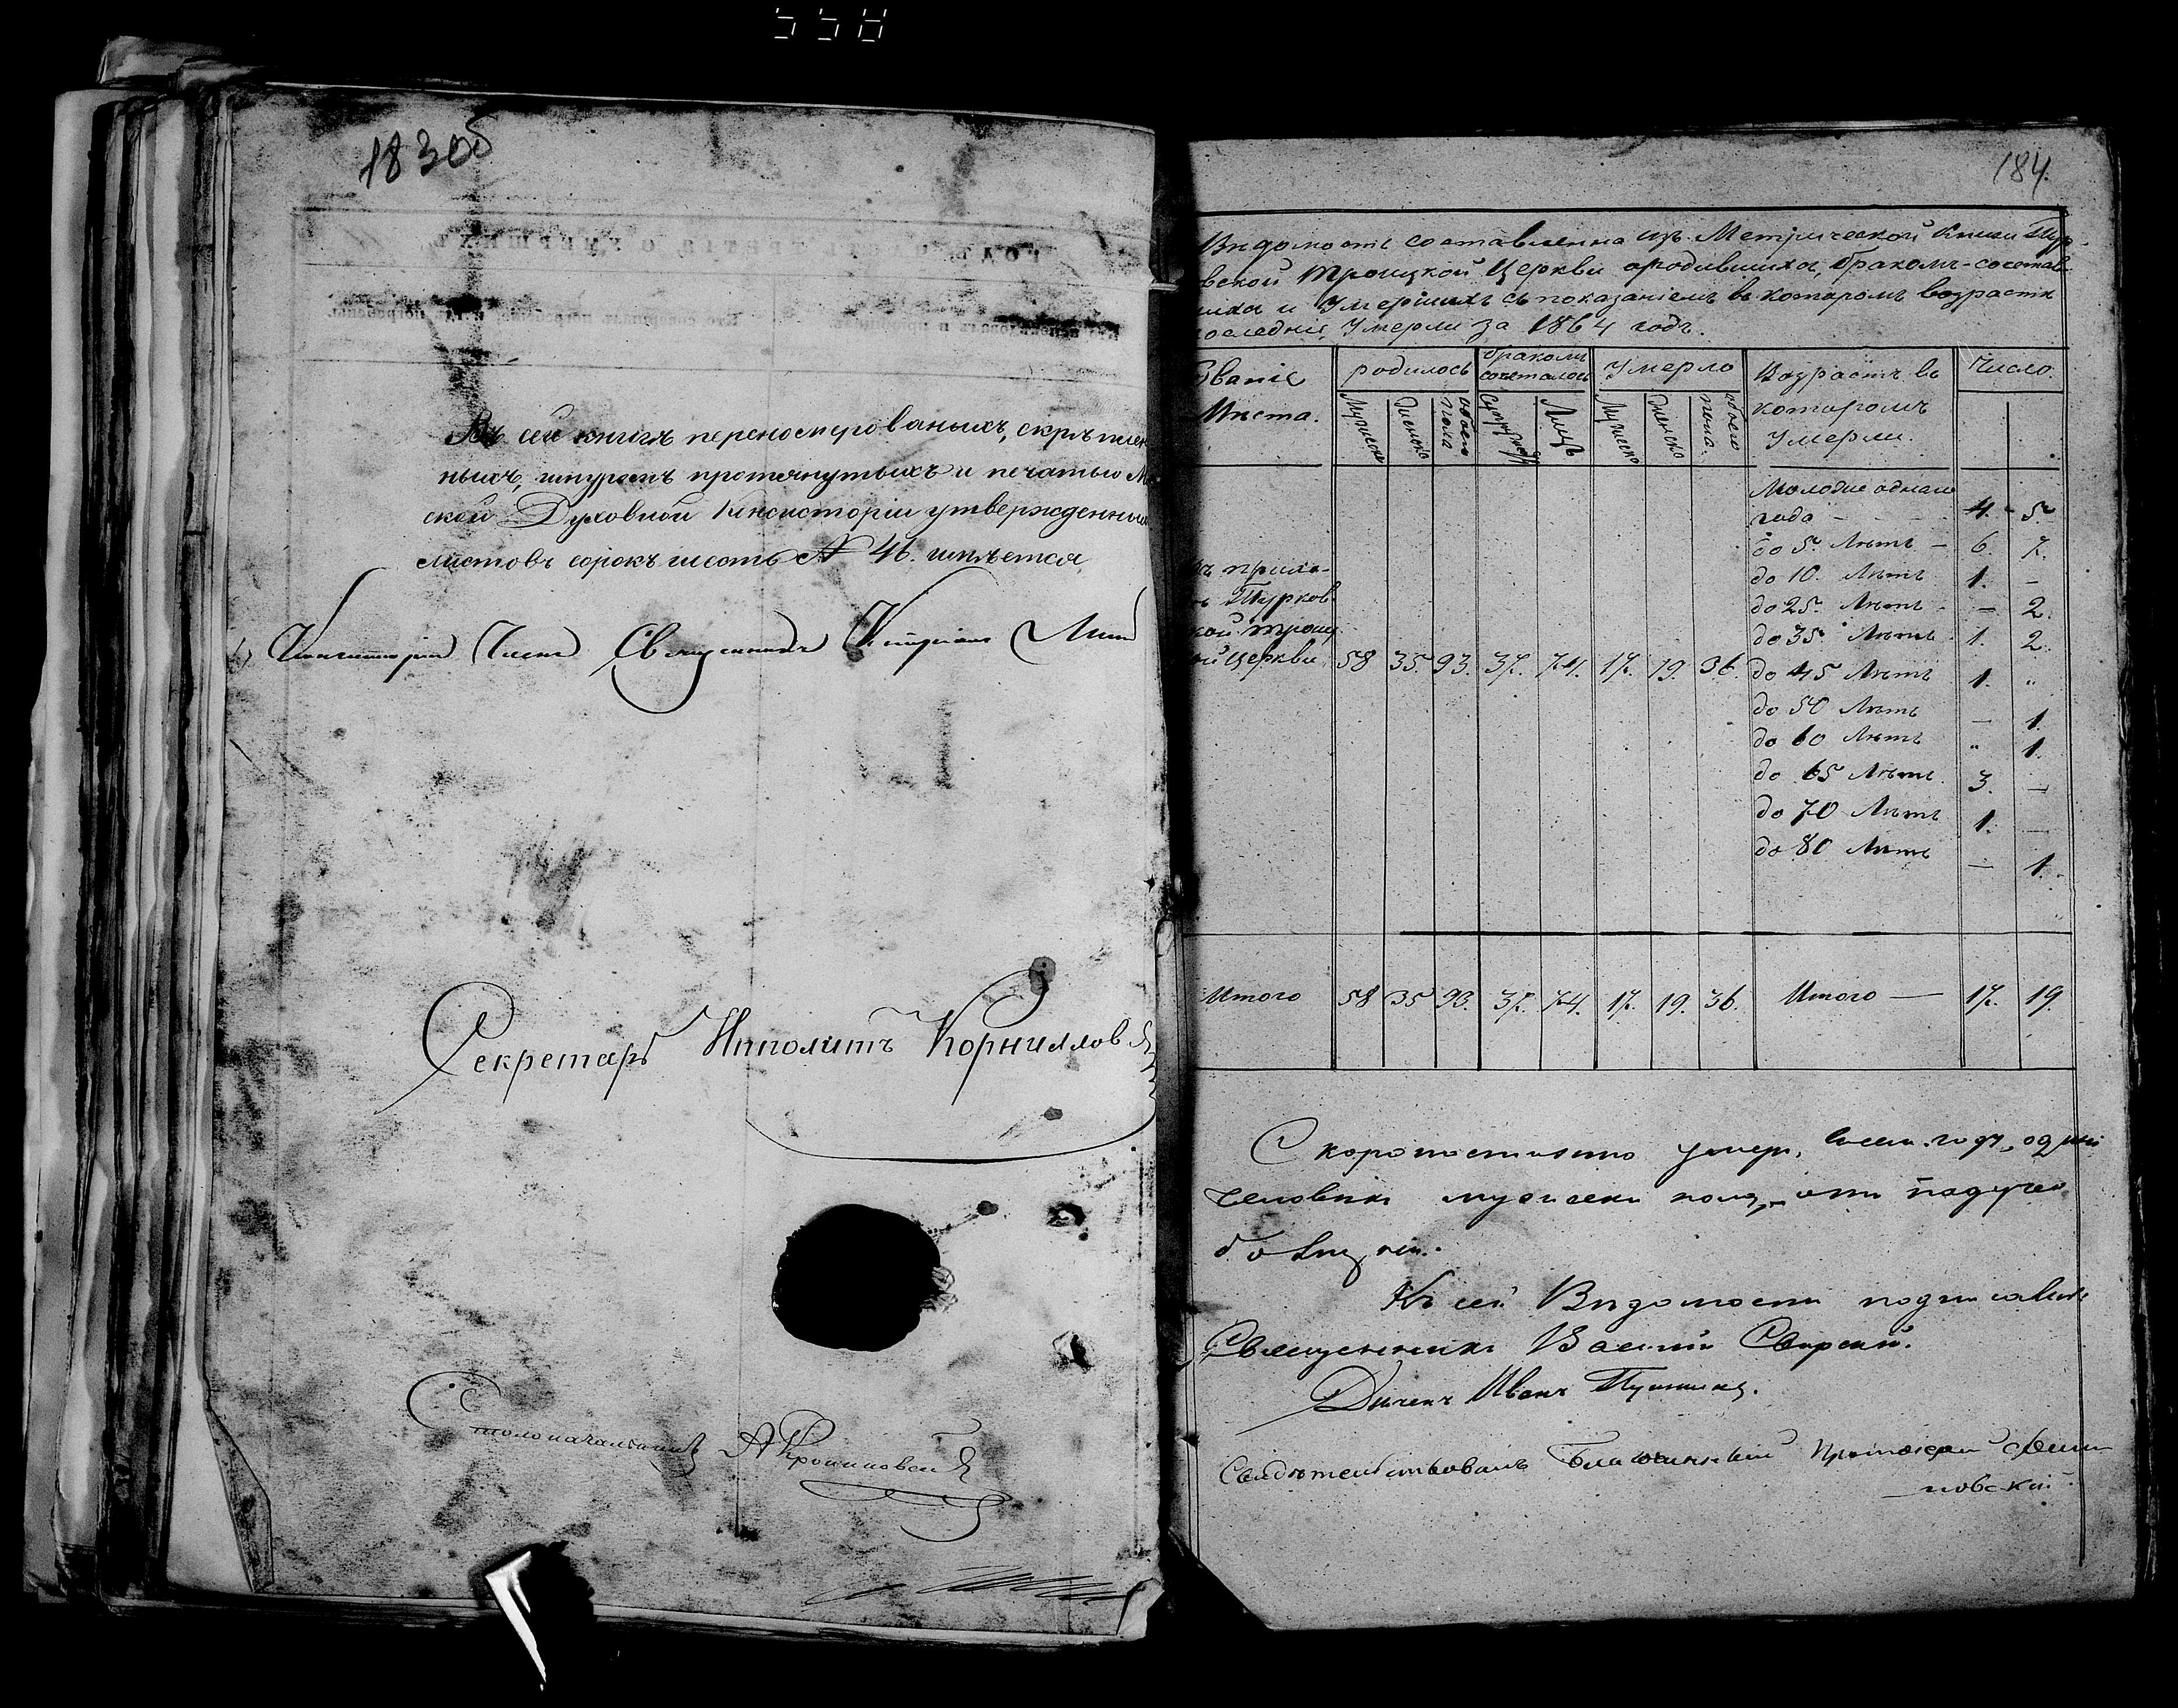 183об
Въ сей книгѣ переномерованыхъ, скрѣплен
ныхъ, шнуромъ протянутыхъ и печатью М
ской Духовной Консисторіи утвержденных
листовъ сорокъ шесть № 46. имѣется
Консисторіи Членъ Священникъ
Секретарь Ипполитъ Корнилловъ
Столоначальникъ
184.
Вѣдомость составленна изъ Метрической Книги Тур-
вской Троицкой Церкви ородившихся, бракомъ-сочетав-
шихся и Умершихъ съ показаніемъ въ которомъ возрастѣ
послѣдніе Умерли за 1864 годъ.
Званіе родилось бракомъ сочеталось Умерло Возрастъ въ Число.
Мѣста. Мужеска Женска обоего пола Супруж Лицъ Мужеска Женска обоего пола. которомъ
Умерли.
Молодше однаго
года - 4. - 5.
до 5. Лѣтъ - 6. 7.
въ прихо- до 10. Лѣтъ 1. -
Турков. до 25. Лѣтъ - - 2.
кой Троиц до 35 Лѣтъ 1. 2.
ой Церкви 58 35. 93. 37. 74. 17. 19. 36. до 45 Лѣтъ 1. "
до 50 Лѣтъ - 1.
до 60 Лѣтъ " 1.
до 65 Лѣтъ 3. -
до 70 Лѣтъ 1. -
до 80 Лѣтъ - 1.
Итого 58 35 93. 37. 74. 17. 19. 36. Итого - 17. 19.
Скоропостижно умер. въ семъ году, одинъ
человѣкъ мужеска пола, отъ падучей
болѣзни.
Къ сей Вѣдомости подписались
Священникъ Василій Свирскій.
Дьячекъ Иванъ
Свидѣтельствовалъ Благочинный Протоіерей
новскій